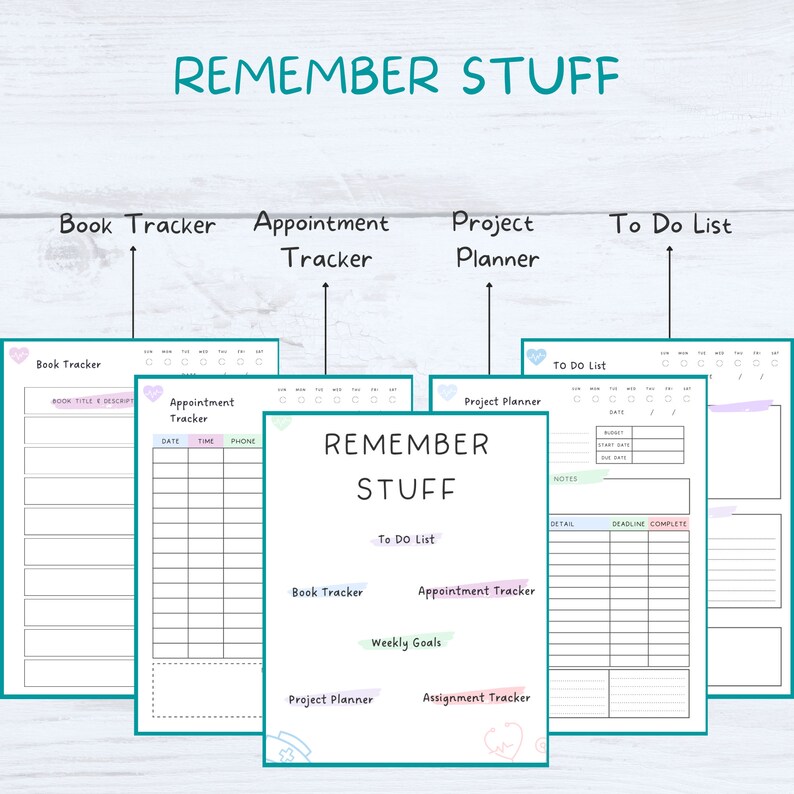 REMEMBER STUFF
Book Tracker
Appointment
Tracker
Project
Planner
To Do List
Book Tracker
SUN MON TUE WED THU FRI SAT
BOOK TITLE & DESCRIPT
Appointment
Tracker
SUN MON TUE WED THU FRI SAT
DATE TIME PHONE
REMEMBER
STUFF
To DO List
Book Tracker
Appointment Tracker
Weekly Goals
Project Planner
Assignment Tracker
Project Planner
SUN MON TUE WED THU FRI SAT
DATE / /
BUDGET
START DATE
DUE DATE
NOTES
DETAIL DEADLINE COMPLETE
TO DO List
SUN MON TUE WED THU FRI SAT
/ /